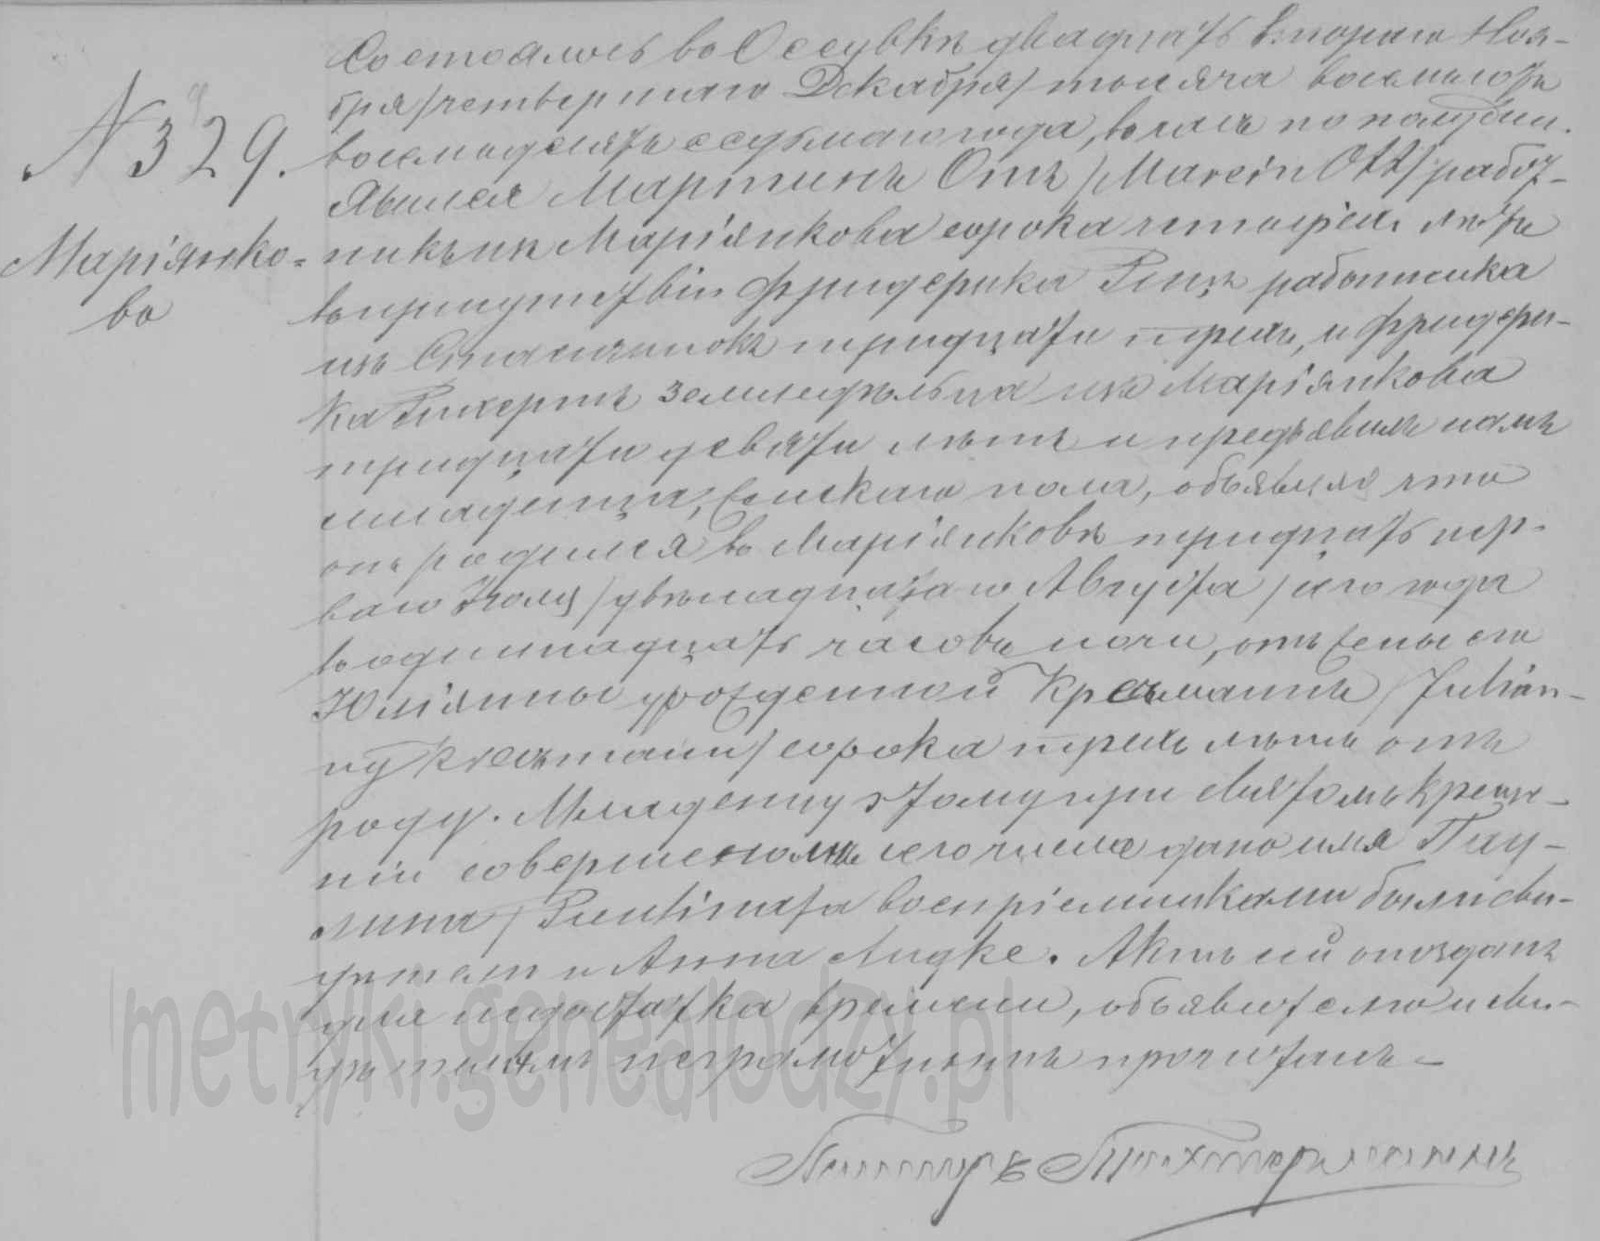 № 329.
Маріянко-
во
Состоялось во Оссувкѣ двадцать втораго Ноя-
бря/четвертаго Декабря/тысяча восемьсотъ
восемьдесятъ седьмаго года, въ часъ по полудни.
Явился Мартинъ Отъ /Marcin Ott/ работ-
никъ изъ Маріянкова сорока четырехъ лѣтъ
въ присутствіи Фридерика работника
изъ тридцати трехъ, и Фридери-
ка земледѣльца изъ Маріянкова
тридцати девяти лѣтъ и предъявилъ намъ
младенца, Женскаго пола, объявляя что
онъ родился въ Маріянковѣ тридцать пер-
ваго Іюля /двѣнадцатаго Августа/ сего года
въ одиннадцать часовъ ночи, отъ Жены его
Юліянны урожденной /Julian-
ny сорока трехъ лѣтъ отъ
роду. Младенцу этому при Святомъ Креще-
ніи совершенномъ сего числа дано имя Пау-
лина /Paulina/ а воспріемниками были сви-
дѣтели и Анна Лидке. Актъ сей опозданъ
для недостатка времени, объявителю и сви-
дѣтелямъ неграмотнымъ прочитанъ.—
Пасторъ
metryki.genealodzy.pl